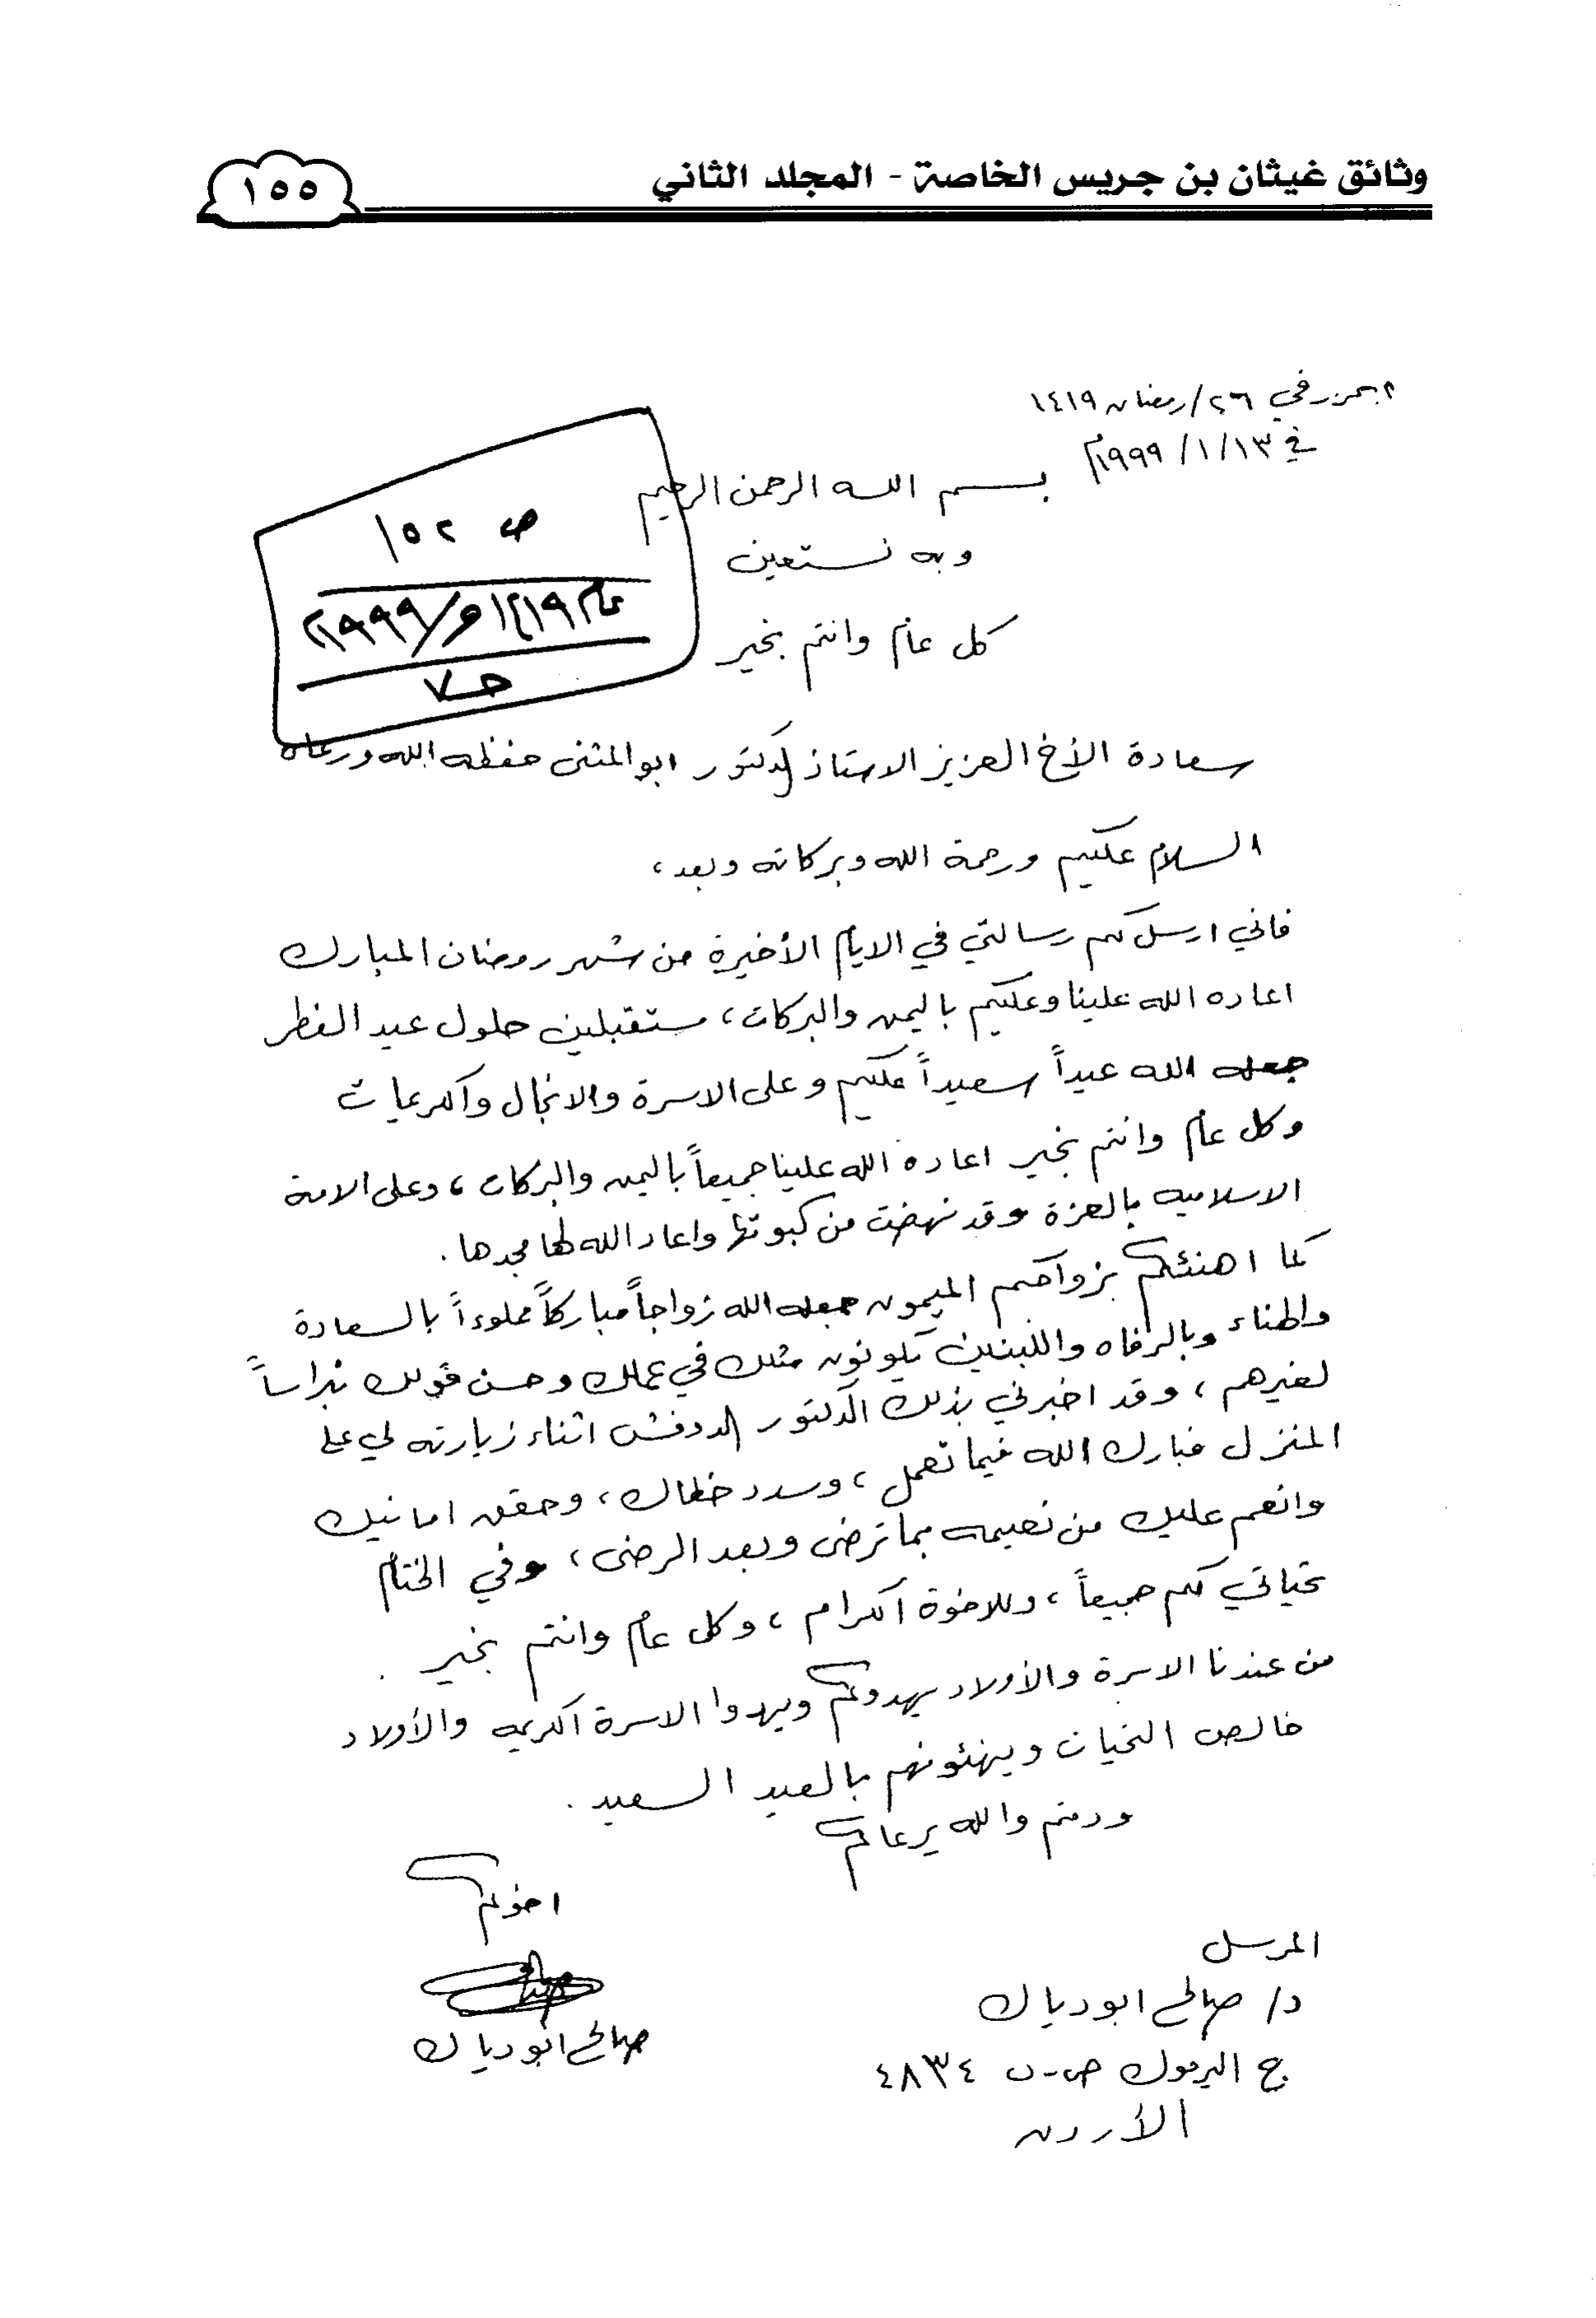 وثائق غيثان بن جريس الخاصة - المجلد الثاني
١٥٥
في ٢٦/رمضان ١٤١٩
في ١٣/١/١٩٩٩م
بسم الله الرحمن الرحيم
وبه نستعين
كل عام وانتم بخير
ص ١٥٢
عام ١٤١٩هـ/١٩٩٩م
حـ٧
سعادة الأخ العزيز الاستاذ الدكتور ابو المثنى حفظه الله ورعاه
السلام عليكم ورحمة الله وبركاته وبعد،
فاني ارسل لكم رسالتي في الايام الأخيرة من شهر رمضان المبارك
اعاده الله علينا وعليكم باليمن والبركات، مستقبلين حلول عيد الفطر
جعله الله عيداً سعيداً عليكم وعلى الاسرة والانجال والكريمات
وكل عام وانتم بخير اعاده الله علينا جميعاً باليمن والبركات، وعلى الامة
الاسلاميه بالعزة وقد نهضت من كبوتها واعاد الله لها مجدها.
كما اهنئكم بزواجكم الميمون جعله الله زواجاً مباركاً مملوءاً بالسعادة
والهناء وبالرفاه والبنين يكونون مثلك في عملك وحسن قولك نبراساً
لغيرهم، وقد اخبرني بذلك الدكتور اثناء زيارته لي على
المنزل فبارك الله فيما تعمل، وسدد خطاك، وحقق امانيك
وانعم عليك من نعيمه بما ترضى وبعد الرضى، وفي الختام
تحياتي لكم جميعاً، وللاخوة الكرام، وكل عام وانتم بخير.
من عندنا الاسرة والأولاد يهدوكم ويهدوا الاسرة الكريمه والأولاد
خالص التحيات ويهنئونهم بالعيد السعيد.
ودمتم والله يرعاكم
اخوكم
صالح ابو دياك
المرسل
د/ صالح ابو دياك
ج اليرموك ص.ب ٤٨٣٤
الأردن